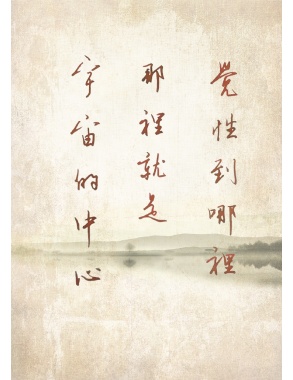 覺性到哪裡
那裡就是
宇宙的中心